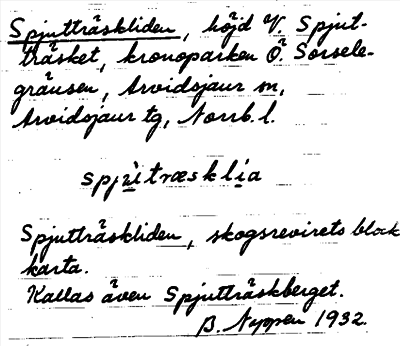 Spjutträskliden, höjd V. Spjut-
träsket, kronoparken Ö. Sorsele-
gränsen, Arvidsjaur sn,
Arvidsjaur tg, Norrb. l.
spjùtræsklia
Spjutträskliden, skogsrevirets block
karta.
Kallas även Spjutträskberget.
B. Nyppen 1932.